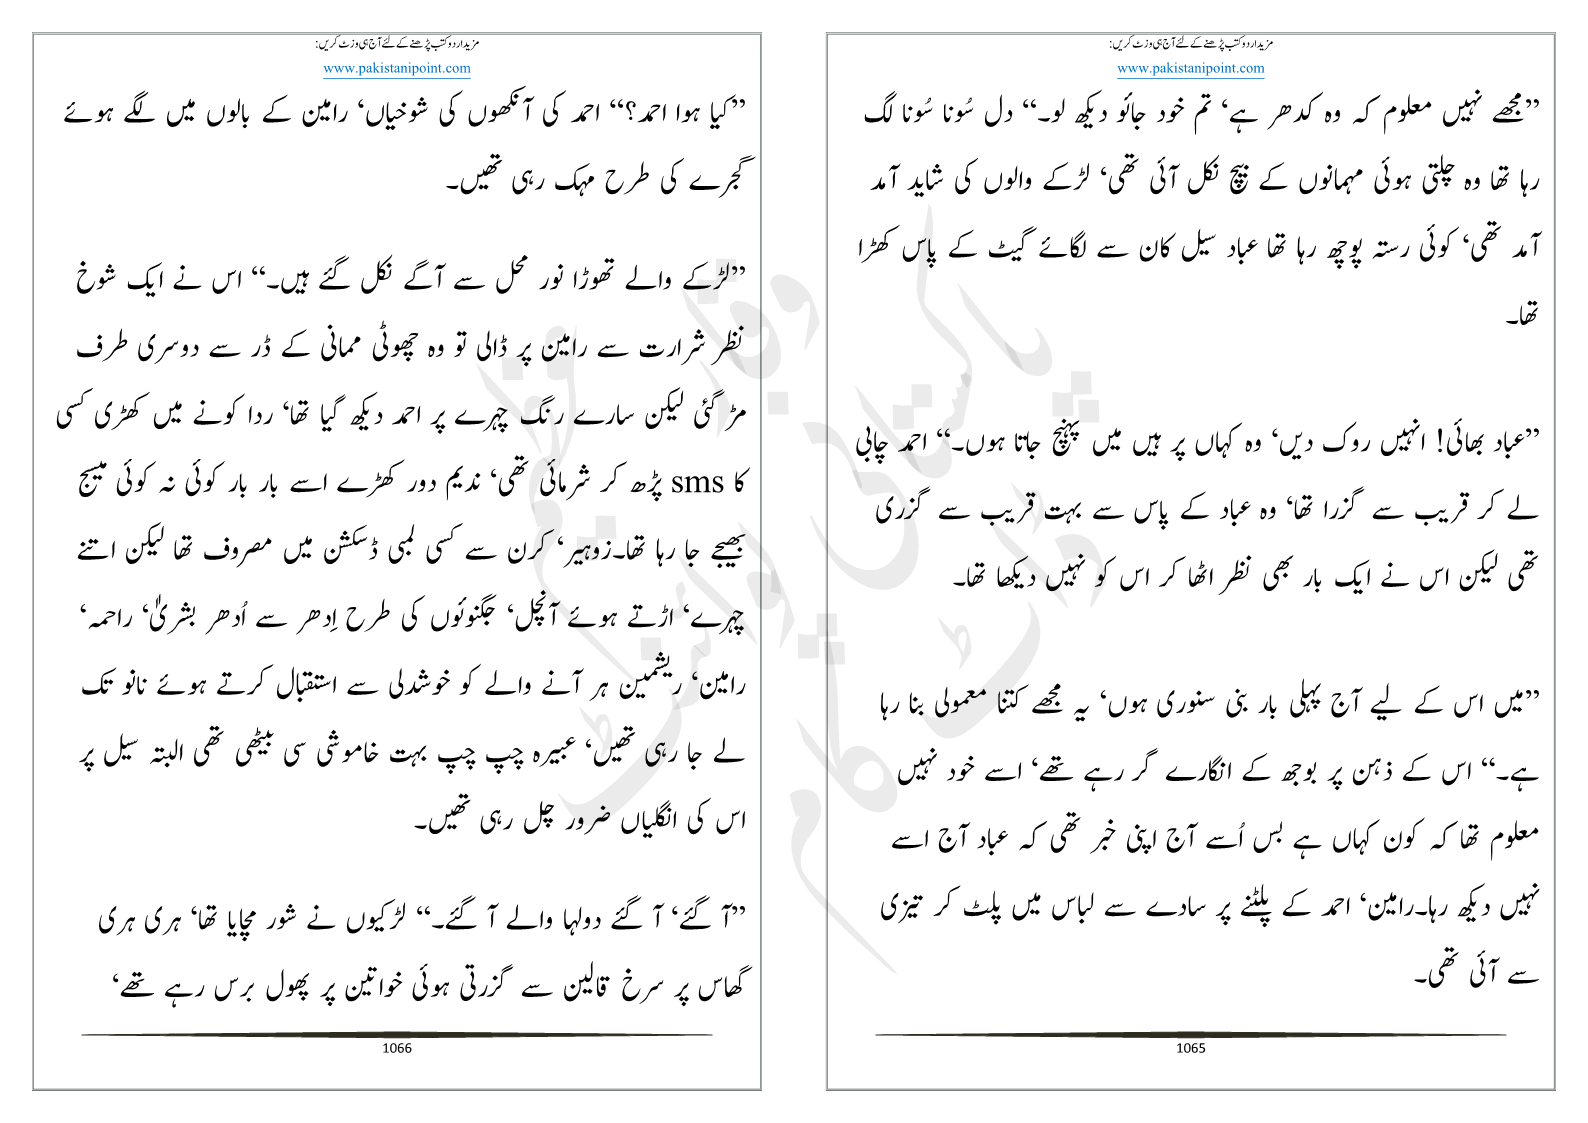 مزید اردو کتب پڑھنے کے لئے آج ہی وزٹ کریں:
www.pakistanipoint.com
”مجھے نہیں معلوم کہ وہ کدھر ہے‘ تم خود جائو دیکھ لو۔“ دل سُونا سُونا لگ
رہا تھا وہ چلتی ہوئی مہمانوں کے بیچ نکل آئی تھی‘ لڑکے والوں کی شاید آمد
آمد تھی‘ کوئی رستہ پوچھ رہا تھا عباد سیل کان سے لگائے گیٹ کے پاس کھڑا
تھا۔
”عباد بھائی! انہیں روک دیں‘ وہ کہاں پر ہیں میں پہنچ جاتا ہوں۔“ احمد چابی
لے کر قریب سے گزرا تھا‘ وہ عباد کے پاس سے بہت قریب سے گزری
تھی لیکن اس نے ایک بار بھی نظر اٹھا کر اس کو نہیں دیکھا تھا۔
”میں اس کے لیے آج پہلی بار بنی سنوری ہوں‘ یہ مجھے کتنا معمولی بنا رہا
ہے۔“ اس کے ذہن پر بوجھ کے انگارے گر رہے تھے‘ اسے خود نہیں
معلوم تھا کہ کون کہاں ہے بس اُسے آج اپنی خبر تھی کہ عباد آج اسے
نہیں دیکھ رہا۔رامین‘ احمد کے پلٹنے پر سادے سے لباس میں پلٹ کر تیزی
سے آئی تھی۔
1065
مزید اردو کتب پڑھنے کے لئے آج ہی وزٹ کریں:
www.pakistanipoint.com
”کیا ہوا احمد؟“ احمد کی آنکھوں کی شوخیاں‘ رامین کے بالوں میں لگے ہوئے
گجرے کی طرح مہک رہی تھیں۔
”لڑکے والے تھوڑا نور محل سے آگے نکل گئے ہیں۔“ اس نے ایک شوخ
نظر شرارت سے رامین پر ڈالی تو وہ چھوٹی ممانی کے ڈر سے دوسری طرف
مڑ گئی لیکن سارے رنگ چہرے پر احمد دیکھ گیا تھا‘ ردا کونے میں کھڑی کسی
کا sms پڑھ کر شرمائی تھی‘ ندیم دور کھڑے اسے بار بار کوئی نہ کوئی میسج
بھیجے جا رہا تھا۔زوہیر‘ کرن سے کسی لمبی ڈسکشن میں مصروف تھا لیکن اتنے
چہرے‘ اڑتے ہوئے آنچل‘ جگنوئوں کی طرح اِدھر سے اُدھر بشریٰ‘ راحمہ‘
رامین‘ ریشمین ہر آنے والے کو خوشدلی سے استقبال کرتے ہوئے نانو تک
لے جا رہی تھیں‘ عبیرہ چپ چپ بہت خاموشی سی بیٹھی تھی البتہ سیل پر
اس کی انگلیاں ضرور چل رہی تھیں۔
”آ گئے‘ آ گئے دولہا والے آ گئے۔“ لڑکیوں نے شور مچایا تھا‘ ہری ہری
گھاس پر سرخ قالین سے گزرتی ہوئی خواتین پر پھول برس رہے تھے‘
1066
پاکستانی پوائنٹ ڈاٹ کام